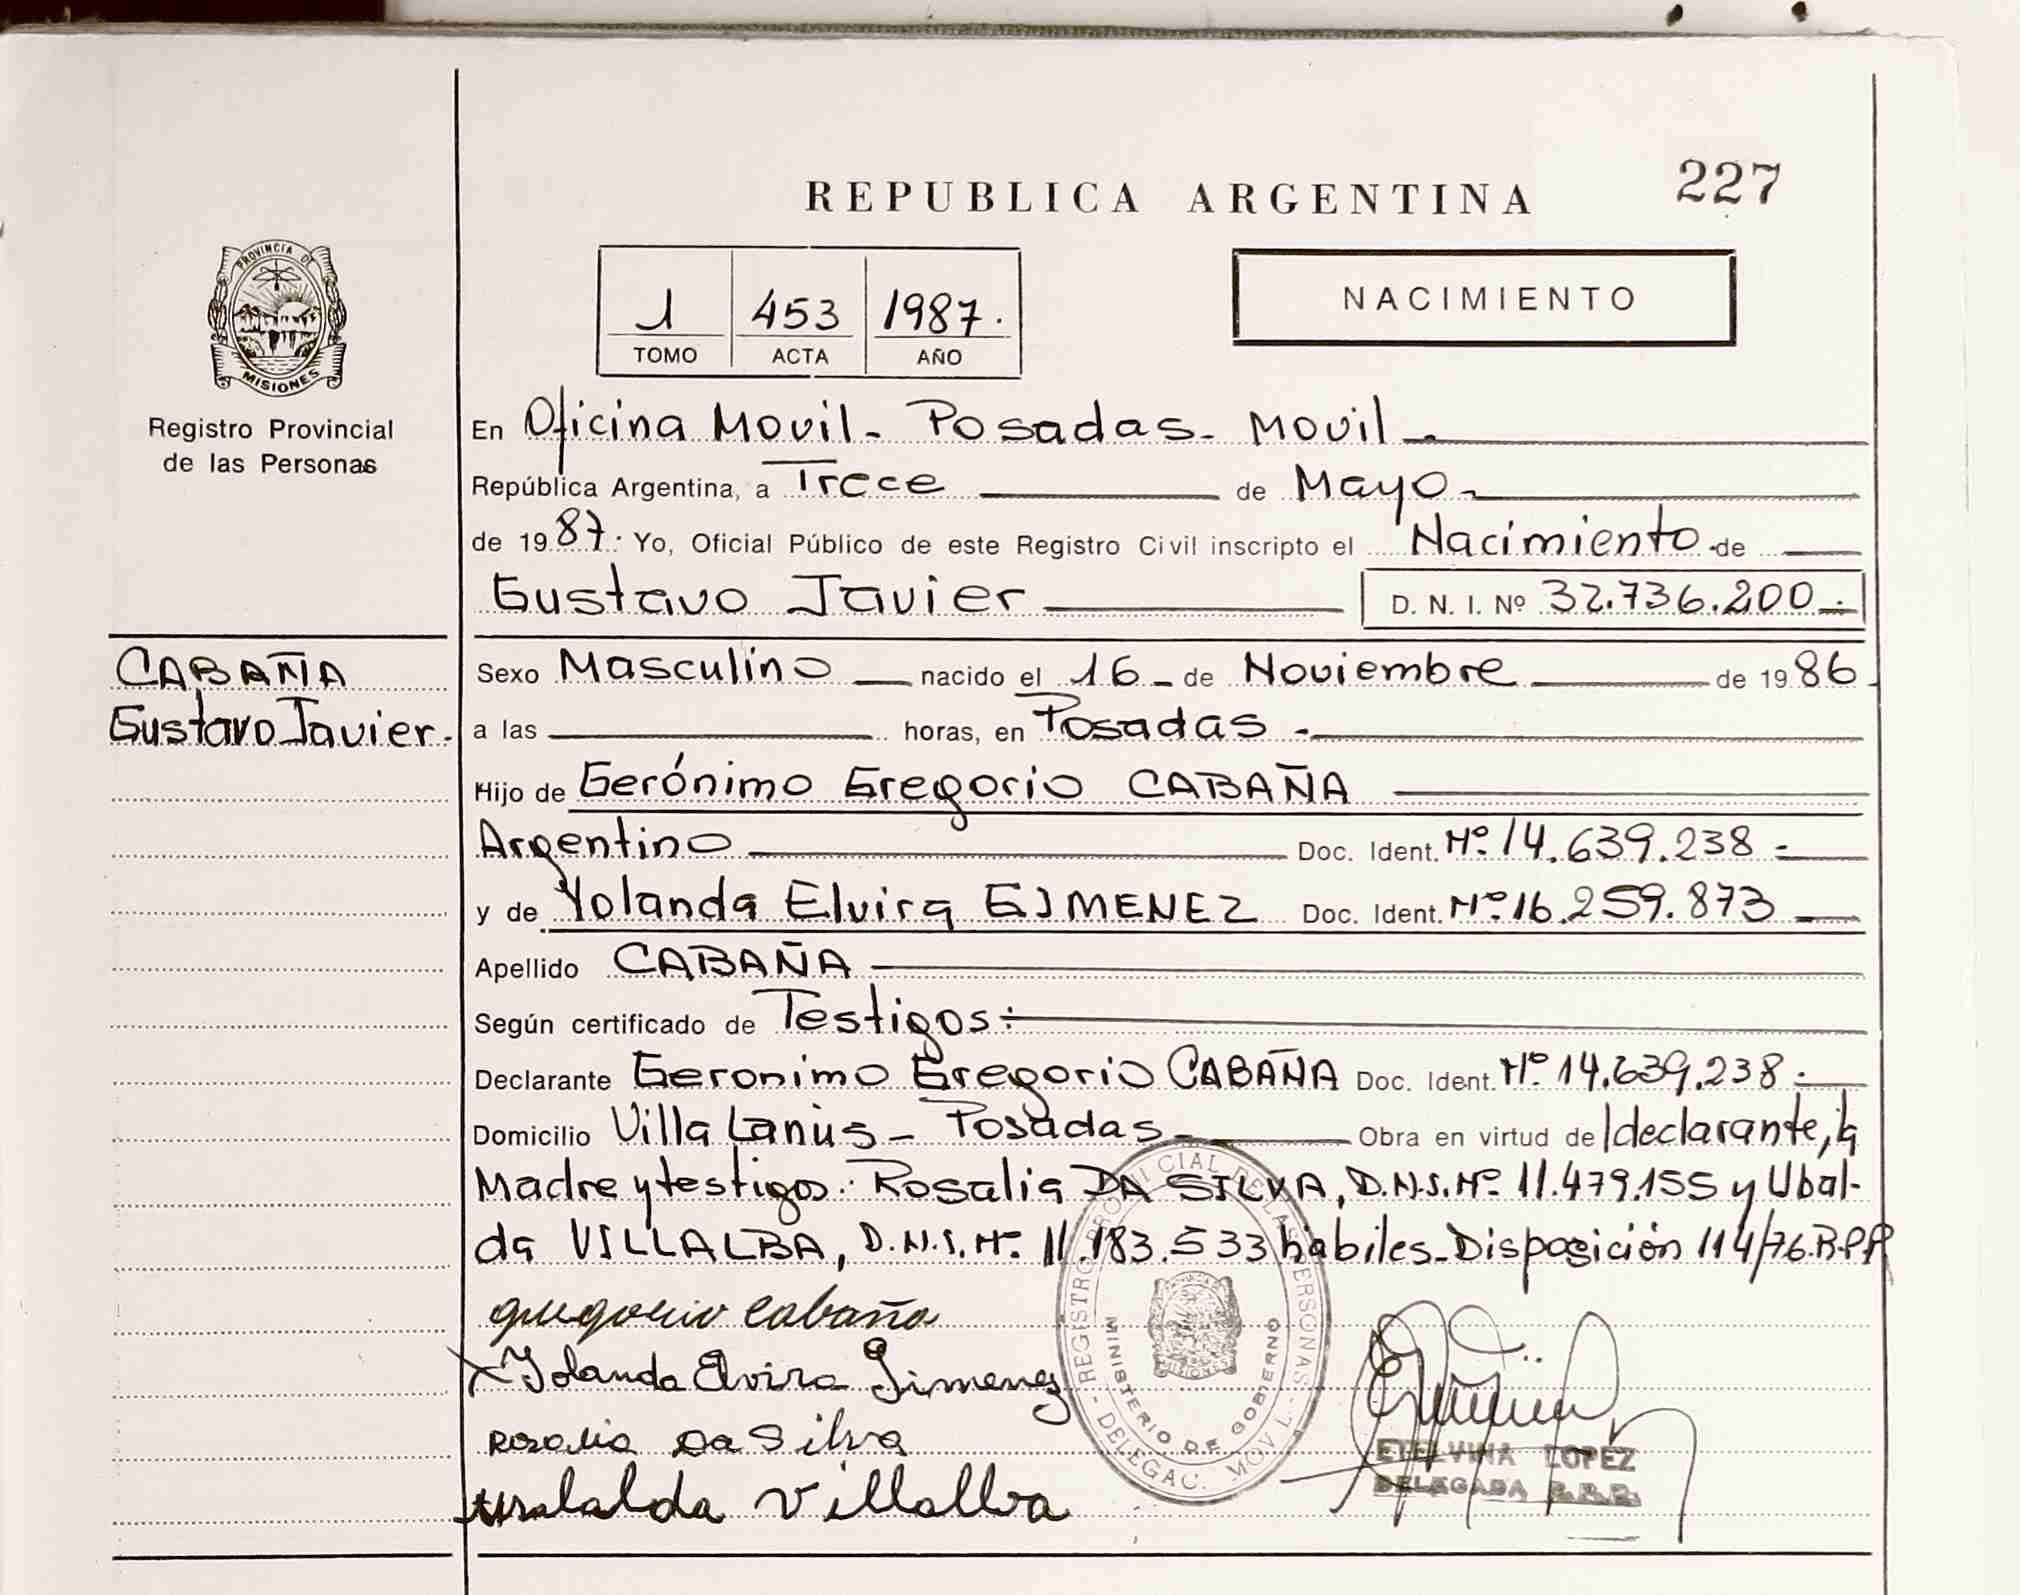 REPUBLICA ARGENTINA
227
PROVINCIA DE
MISIONES
Registro Provincial
de las Personas
1 453 1987.
TOMO ACTA AÑO
NACIMIENTO
En Oficina Movil - Posadas - Movil
República Argentina, a Trece de Mayo
de 1987. Yo, Oficial Público de este Registro Civil inscripto el Nacimiento de
Gustavo Javier D. N. I. Nº 32.736.200
CABAÑA
Gustavo Javier
Sexo Masculino nacido el 16 de Noviembre de 1986
a las horas, en Posadas
Hijo de Gerónimo Gregorio CABAÑA
Argentino Doc. Ident. Nº 14.639.238
y de Yolanda Elvira GIMENEZ Doc. Ident. Nº 16.259.873
Apellido CABAÑA
Según certificado de Testigos:
Declarante Geronimo Gregorio CABAÑA Doc. Ident. Nº 14.639.238
Domicilio Villa Lanús - Posadas Obra en virtud de declarante, la
Madre y testigos: Rosalia DA SILVA, D.N.I. Nº 11.479.155 y Ubal-
da VILLALBA, D.N.I. Nº 11.183.533 hábiles - Disposición 114/76. R.P.P
gregorio Cabaña
Yolanda Elvira Gimenez
Rosalia Da Silva
Ubalda Villalba
REGISTRO PROVINCIAL DE LAS PERSONAS - DELEGAC. MOVIL -
MINISTERIO DE GOBIERNO
ETELVINA LOPEZ
DELEGADA R.P.P.